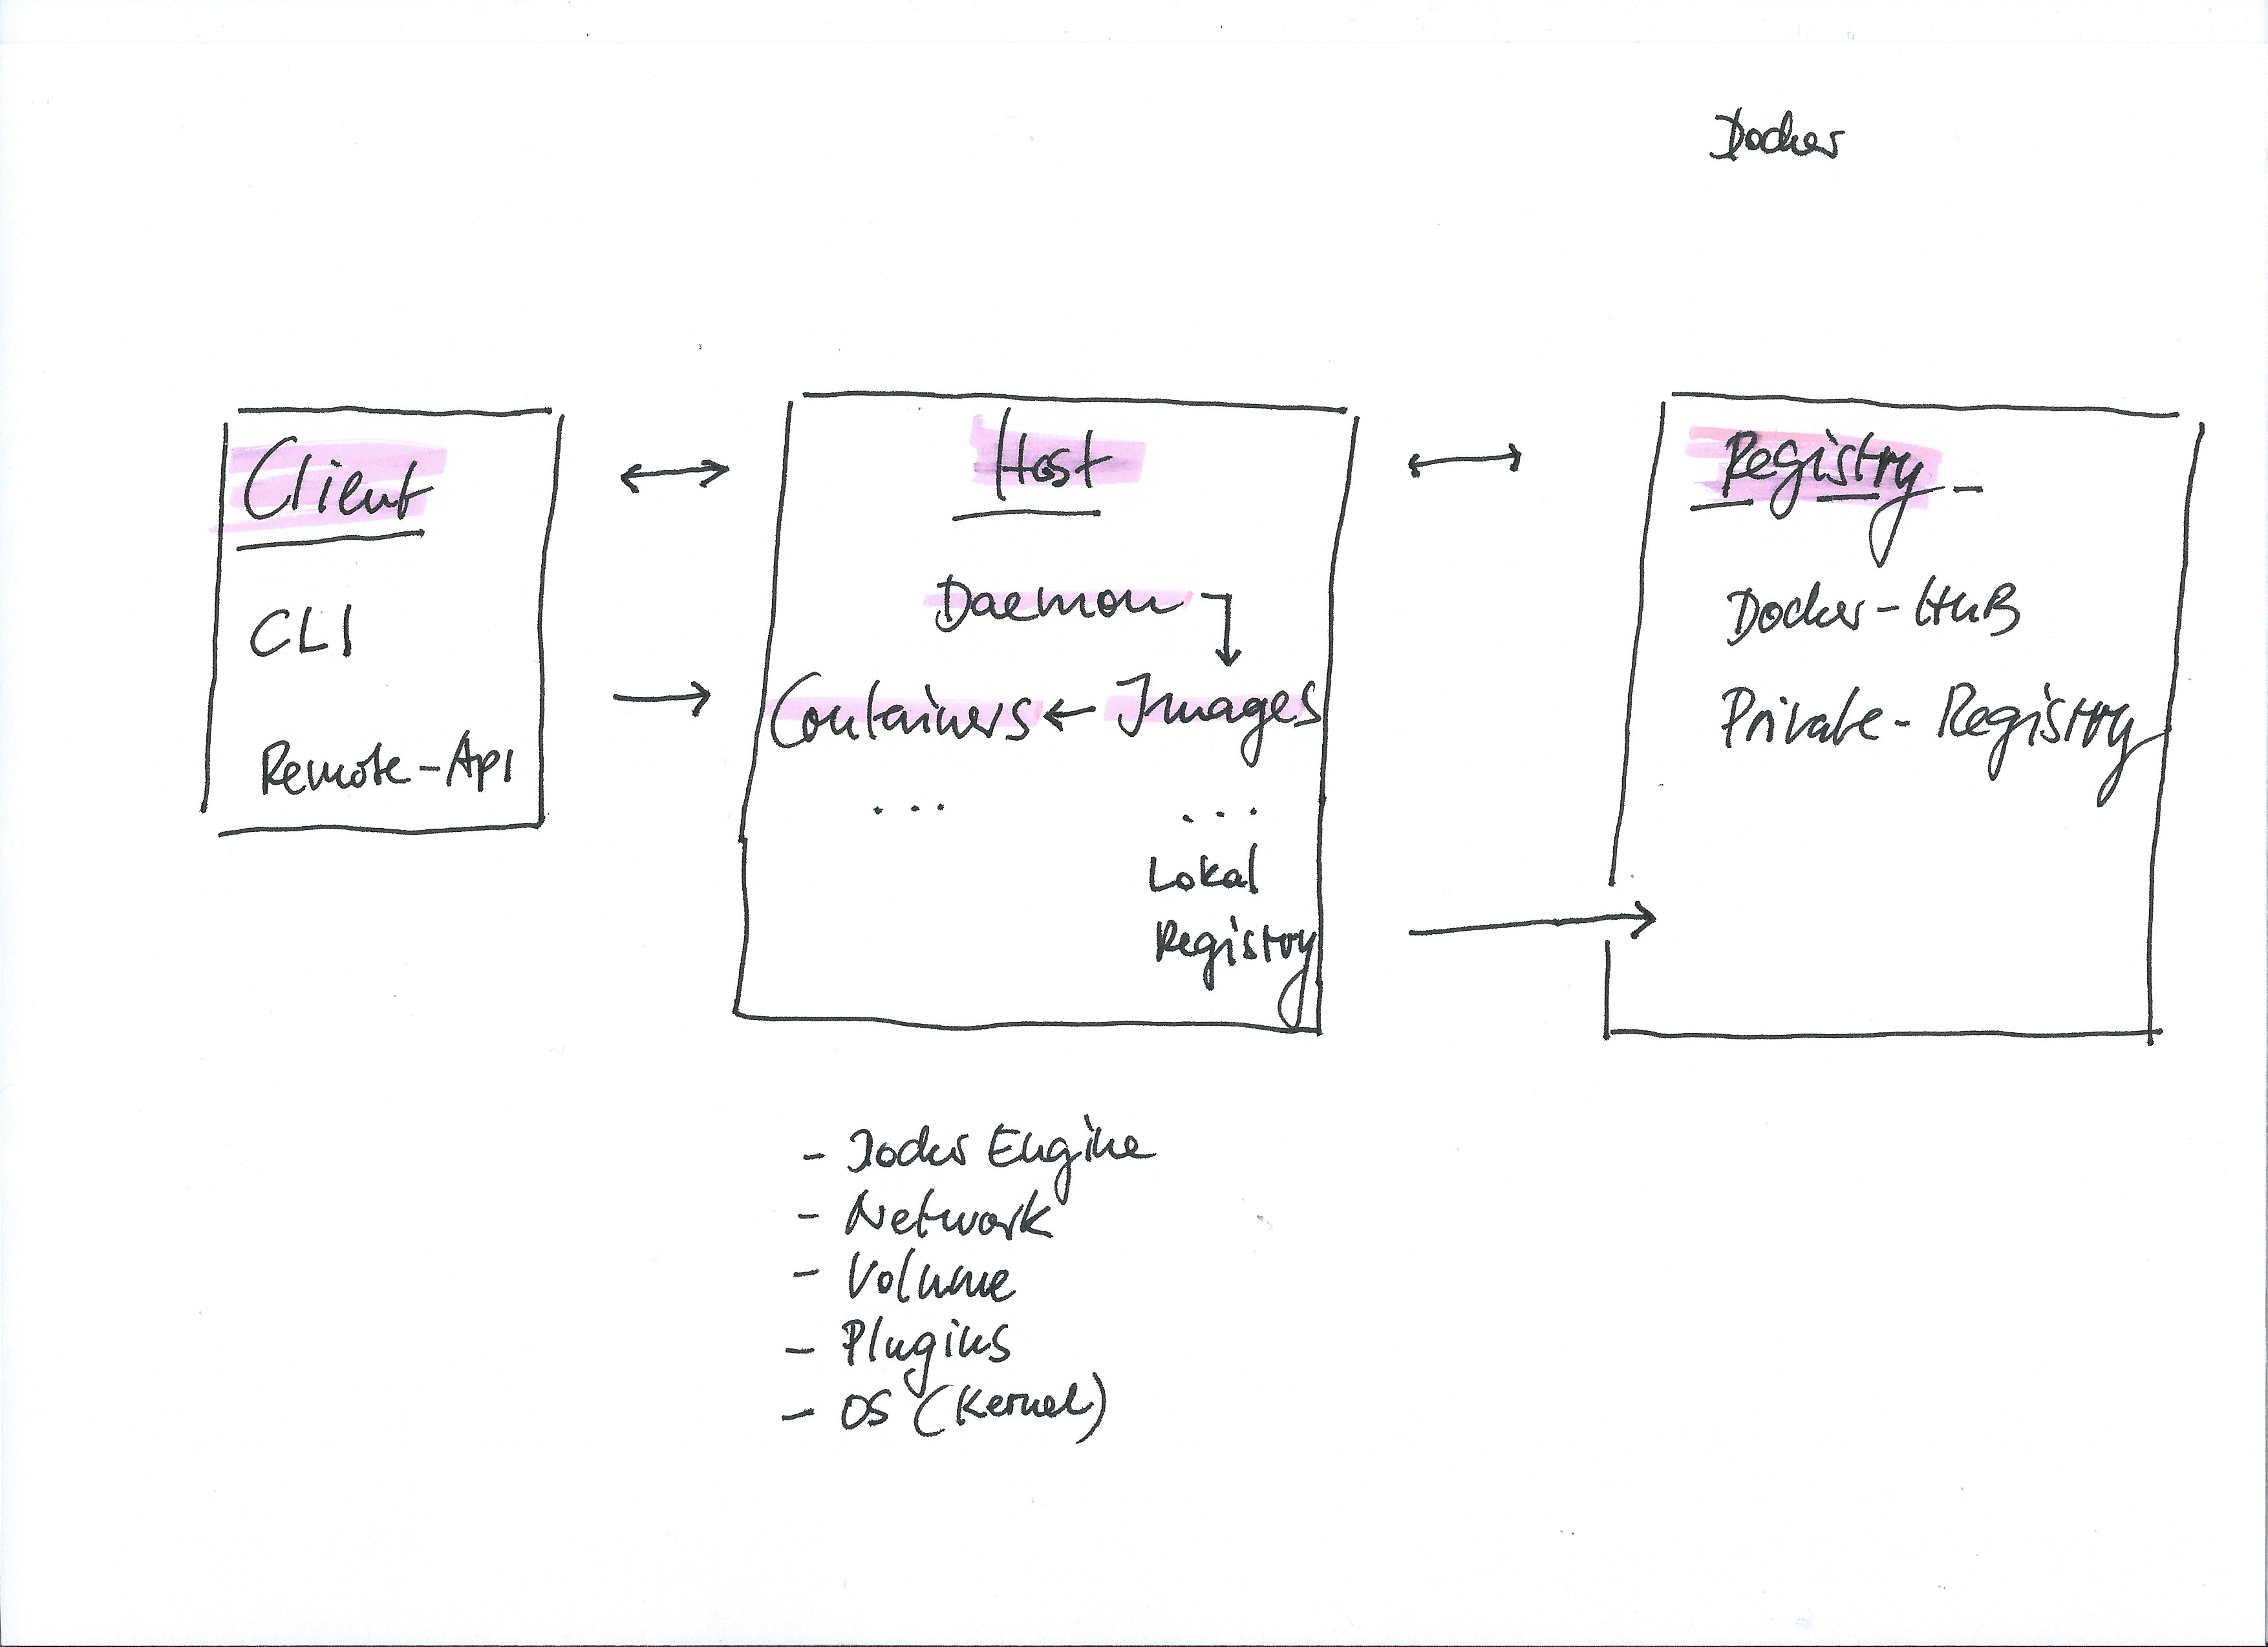 Docker
Client
CLI
Remote-Api
Host
Daemon
Containers ← Images
... ...
Lokal
Registry
Registry
Docker-HuB
Private-Registry
- Docker Engine
- Network
- Volume
- Plugins
- OS (Kernel)